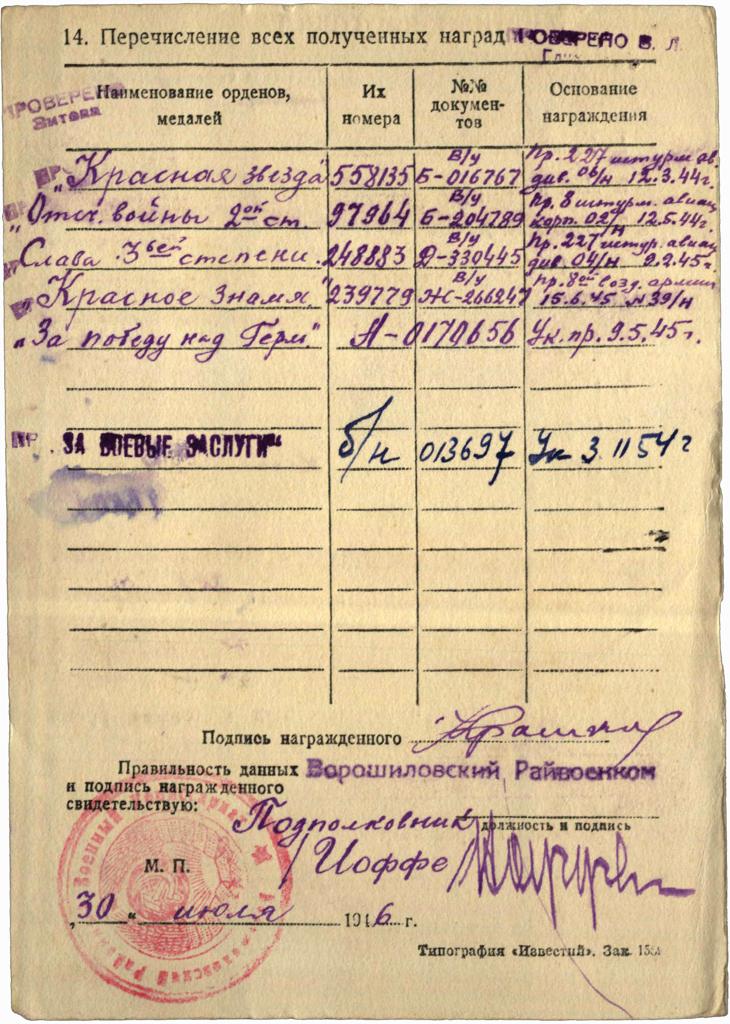 14. Перечисление всех полученных наград ПРОВЕРЕНО В. Л.
ПРОВЕРЕНО
Наименование орденов, медалей
Их номера
№№ документов
Основание награждения
„Красная звезда" 558135 в/у Б-016767 Пр. 227 штурм ав. див. 06/н 12.3.44г.
„Отеч. войны 2ой ст. 97964 в/у Б-204789 Пр. 8 штурм. авиац корп. 027/н 12.5.44г.
Слава 3ьей степени. 248883 в/у Д-330445 Пр. 227 штур. авиац див. 04/н 2.2.45г.
„Красное Знамя" 239779 в/у Ж-266247 Пр. 8ой возд. армии 15.6.45 № 39/н
„За победу над Герм." А-0170656 Ук. пр. 9.5.45г.
ПР. ЗА БОЕВЫЕ ЗАСЛУГИ" б/н 013697 Ук 3 11 54 г
Подпись награжденного
Правильность данных Ворошиловский Райвоенком
и подпись награжденного
свидетельствую:
Подполковник должность и подпись
М. П. /Иоффе/
„30" июля 1946 г.
Типография «Известий». Зак.